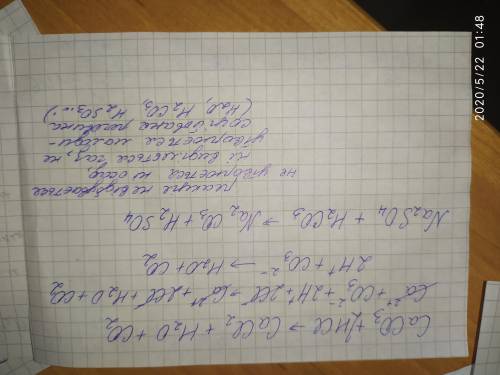 CaCO₃ + 2HCl → CaCl₂ + H₂O + CO₂
Ca²⁺ + CO₃²⁻ + 2H⁺ + 2Cl⁻ → Ca²⁺ + 2Cl⁻ + H₂O + CO₂
2H⁺ + CO₃²⁻ → H₂O + CO₂
Na₂SO₄ + H₂CO₃ → Na₂CO₃ + H₂SO₄
реакція не відбувається
не утворюється ні осад,
ні виділяється газ, не
утворюється малоди-
соційована речовина
(H₂O, H₂CO₃, H₂SO₃...)
2020/5/22 01:48